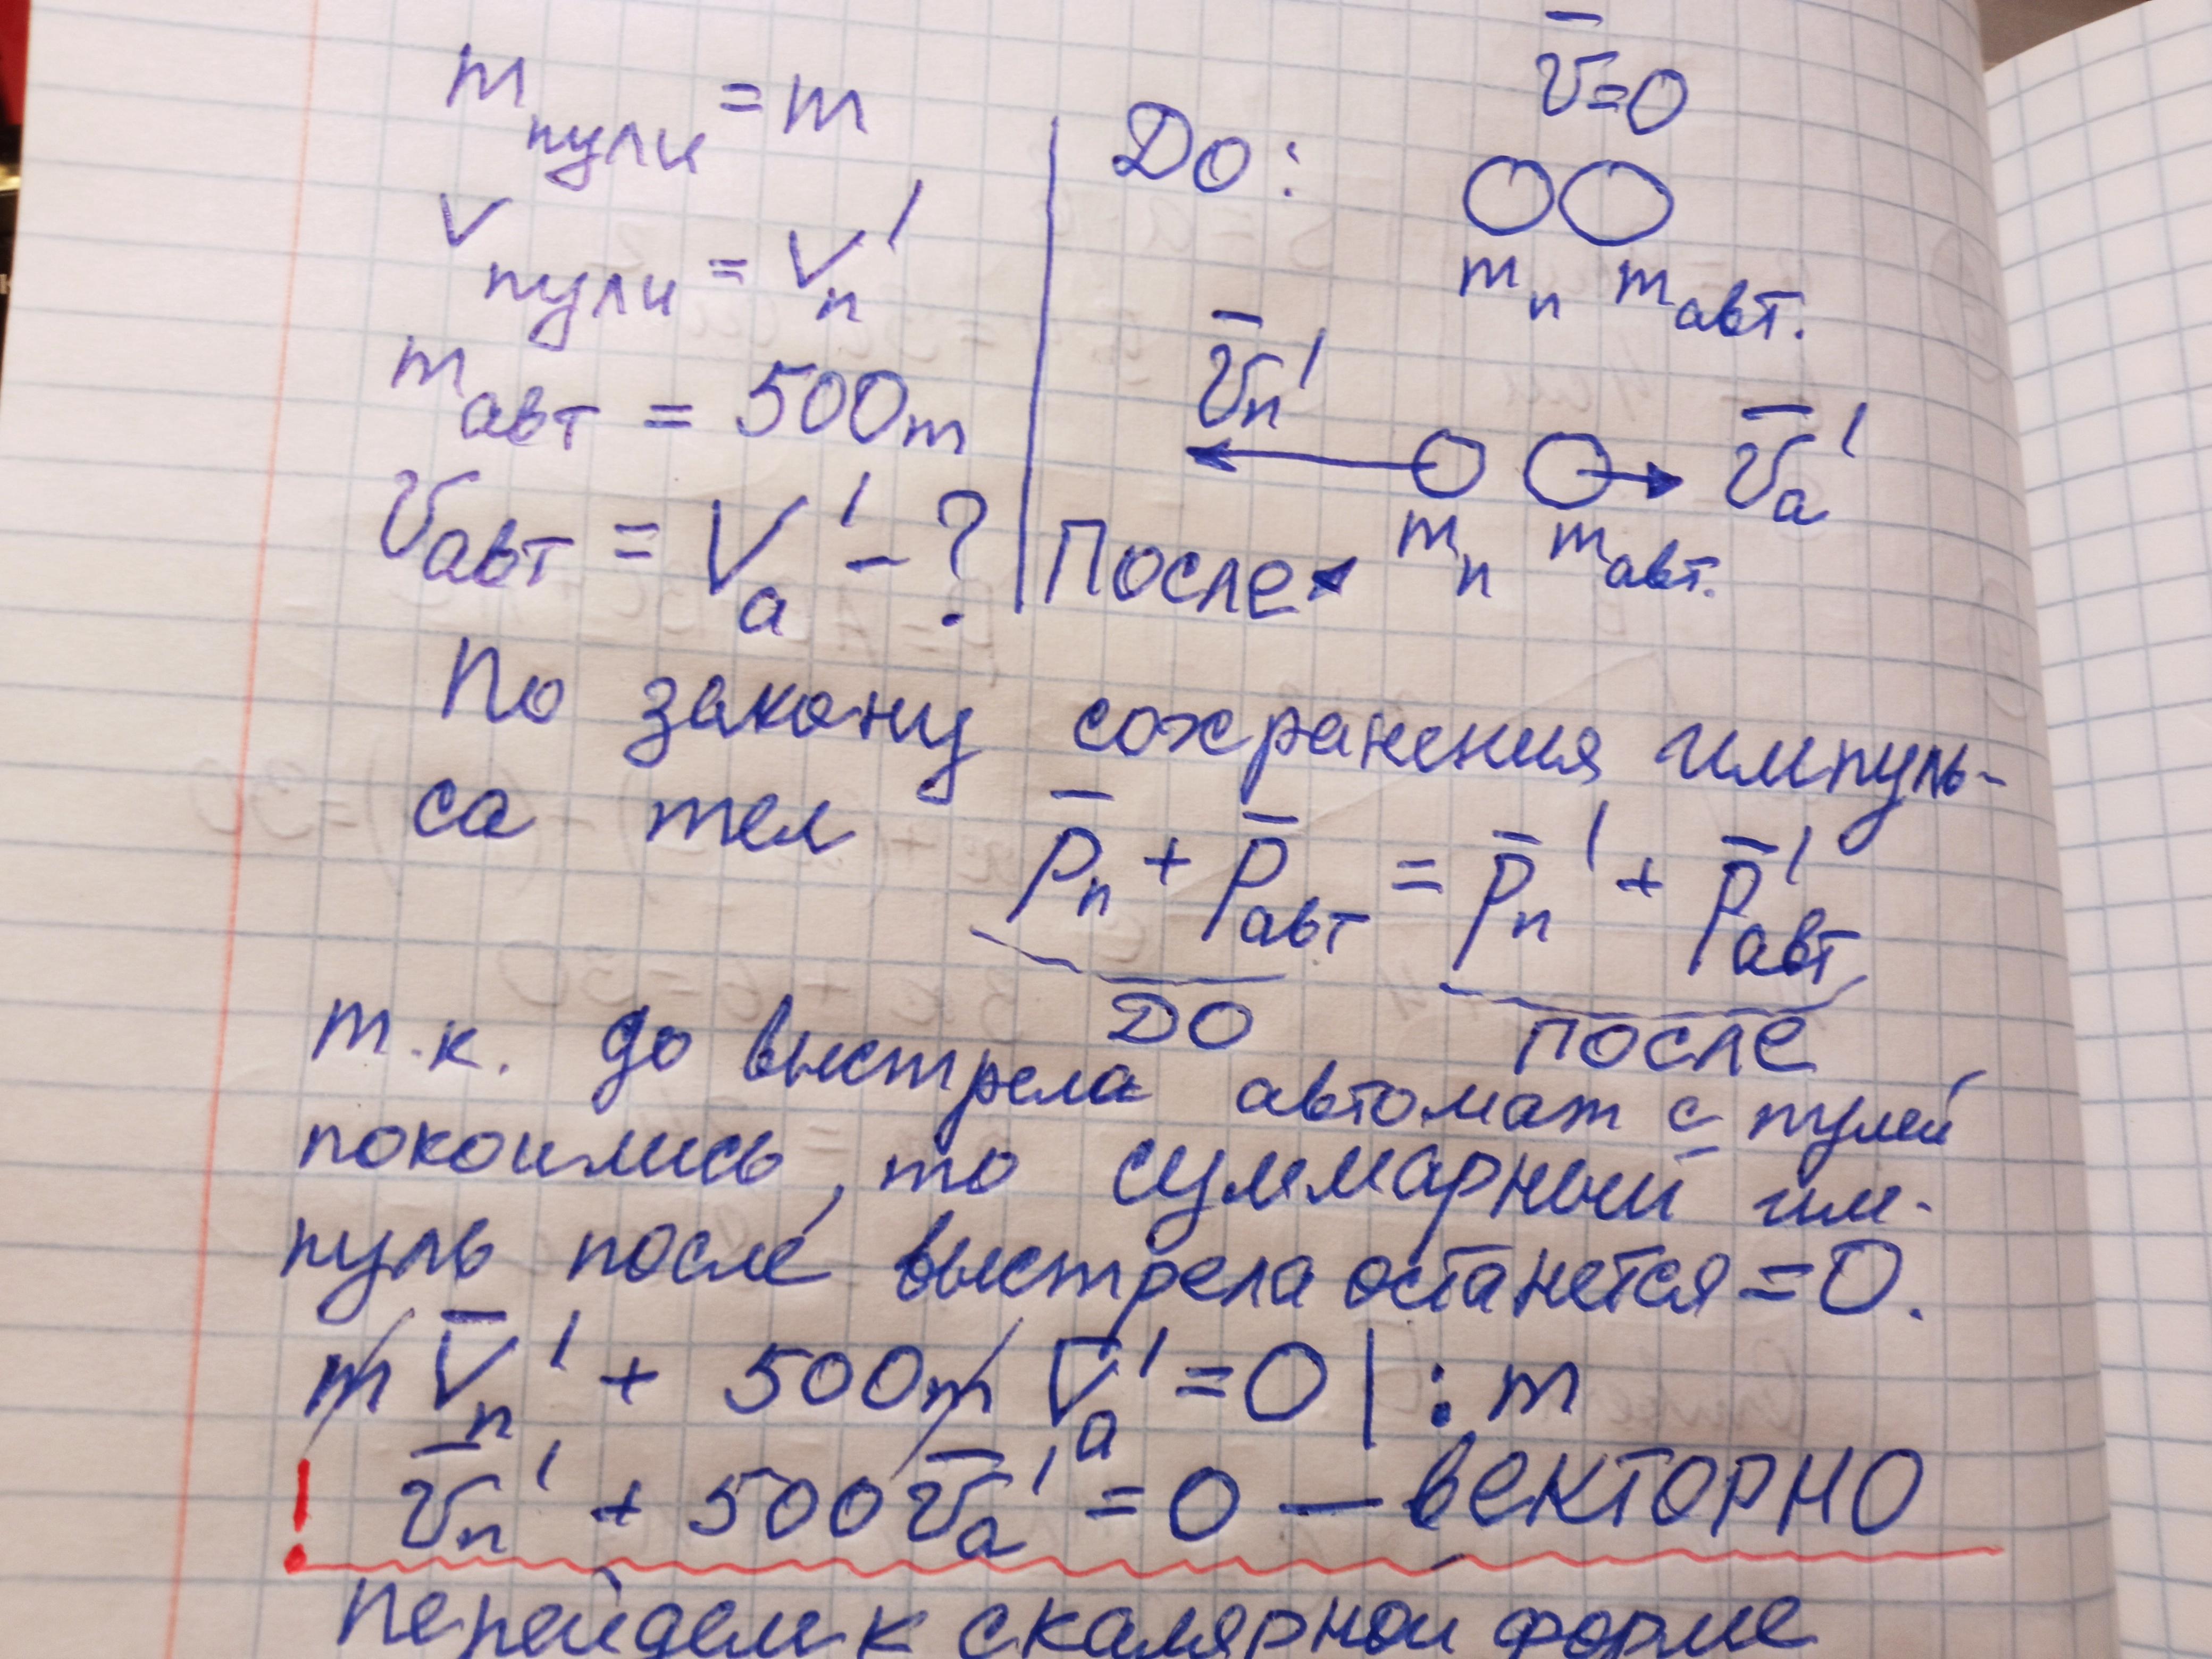 m пули = m
v пули = vп'
m авт = 500m
v авт = vа' - ?
До:
v̄=0
mп mавт.
v̄п' v̄а'
mп mавт.
После:
По закону сохранения импуль-
са тел p̄п + p̄авт = p̄п' + p̄'авт
ДО ПОСЛЕ
т.к. до выстрела автомат с пулей
покоились, то суммарный им-
пуль после выстрела останется = 0.
m v̄п' + 500m v̄а' = 0 | : m
! v̄п' + 500 v̄а' = 0 — ВЕКТОРНО
Перейдем к скалярной форме